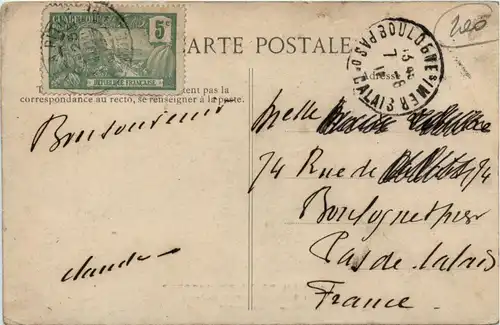 GUADELOUPE
5c
REPUBLIQUE FRANÇAISE
CARTE POSTALE
Adresse
BOULOGNE S MER
PAS D CALAIS
tent pas la
correspondance au recto, se renseigner à la poste.
Bon souvenir
Claude
Melle
74 Rue de 74
Boulogne s mer
Pas de Calais
France